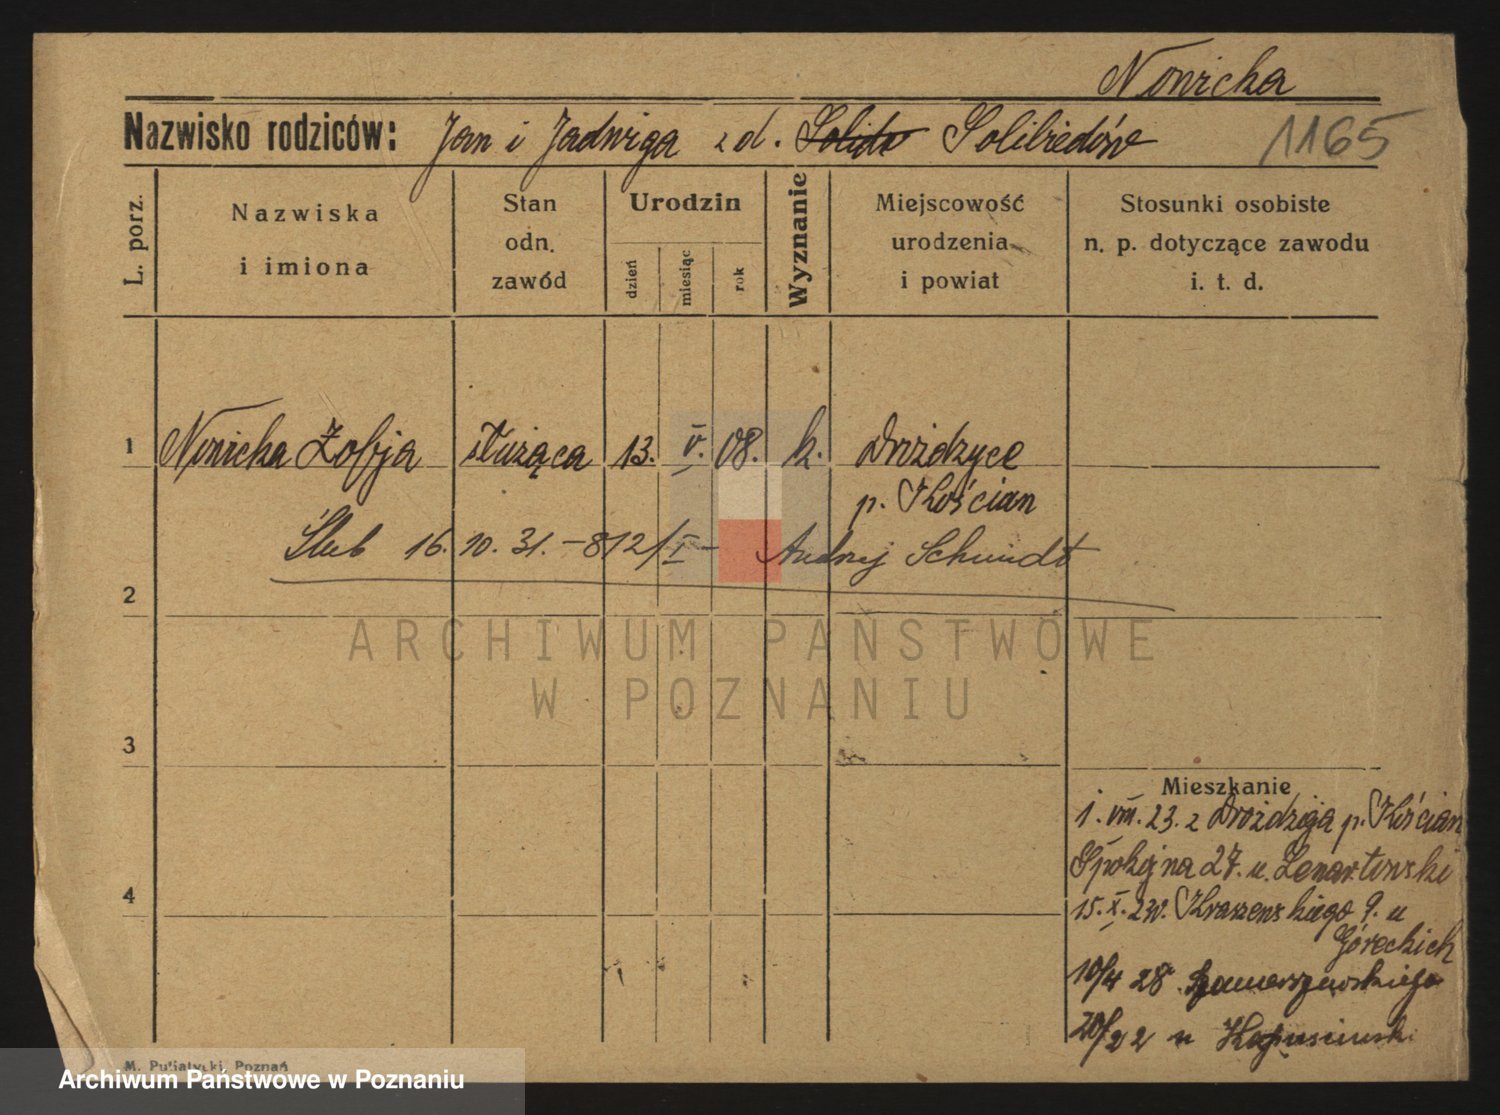 Nowicka
Nazwisko rodziców: Jan i Jadwiga z d. Solibiedów 1165
L. porz.
Nazwiska i imiona
Stan odn. zawód
Urodzin
dzień miesiąc rok
Wyznanie
Miejscowość urodzenia i powiat
Stosunki osobiste n. p. dotyczące zawodu i. t. d.
1 Nowicka Zofja służąca 13. V. 08. k. Drożdzyce
p. Kościan
Ślub 16. 10. 31. – 812/I – Andrzej Schmidt
2
ARCHIWUM PAŃSTWOWE
W POZNANIU
3
Mieszkanie
1. VIII. 23. z p. Kościan
Spokojna 27. u. Lenartowski
4
15. X. Kraszewskiego 9. u
Góreckich
10/4 28
u
M. Putiatycki, Poznań
Archiwum Państwowe w Poznaniu